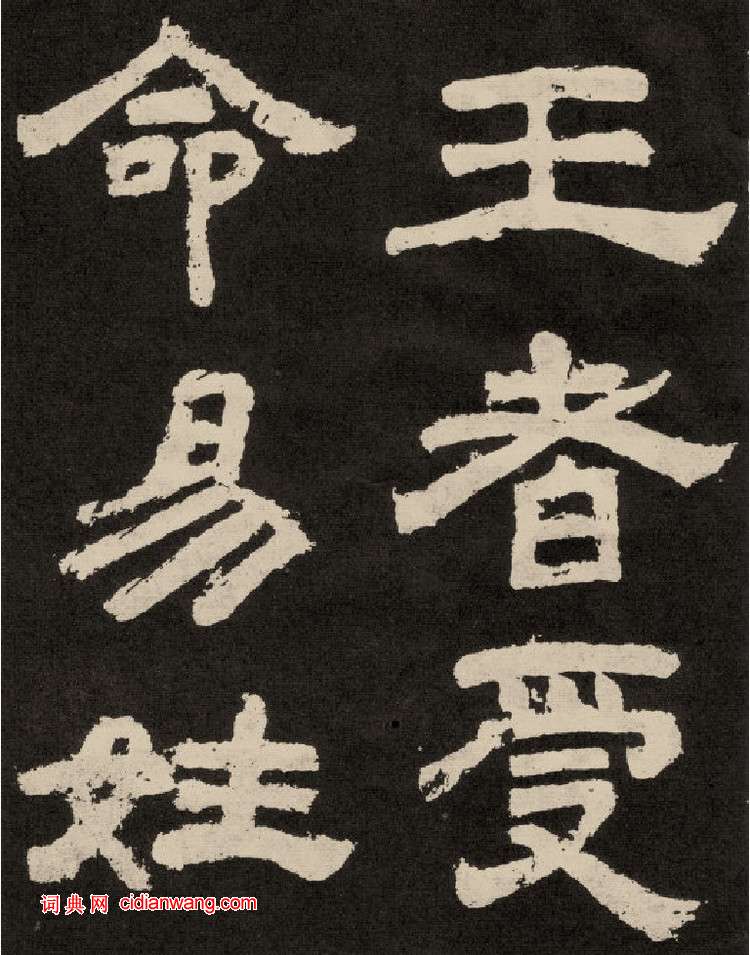 王者受
命易姓
词典网 cidianwang.com